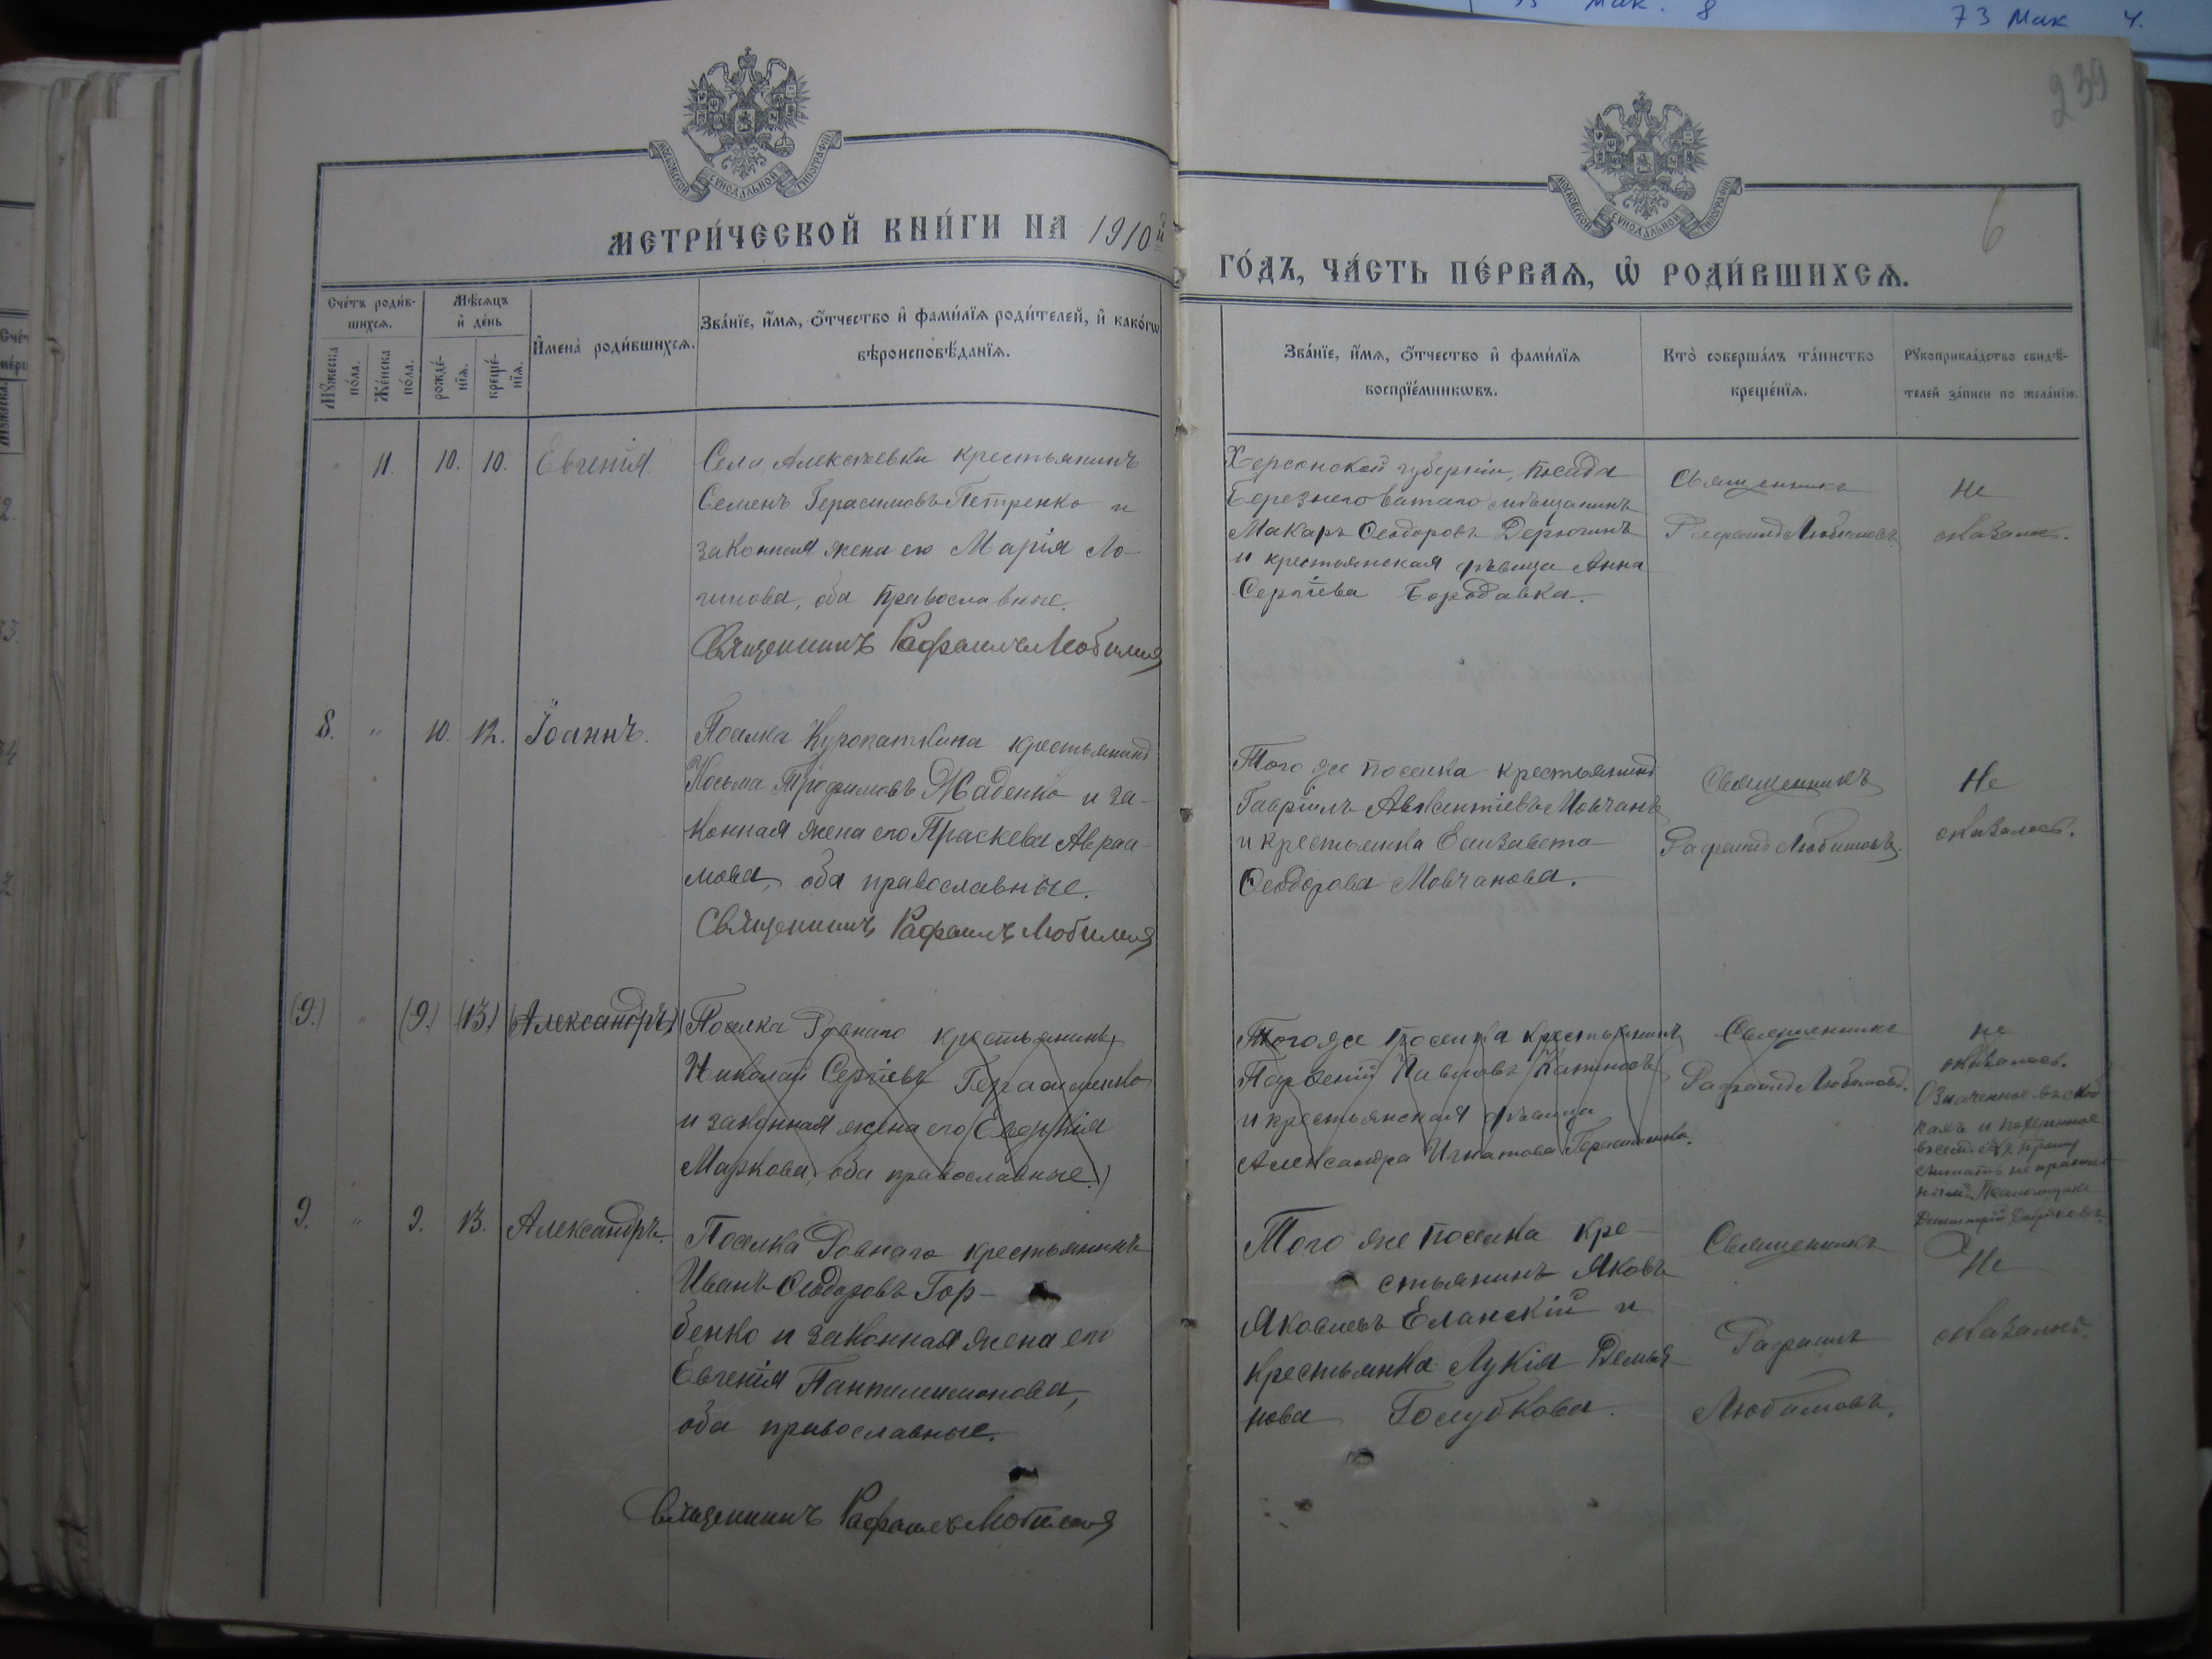 73 Мак 4.
239
6
МОСКОВСКОЙ СѴНОДАЛЬНОЙ ТИПОГРАФІИ
МОСКОВСКОЙ СѴНОДАЛЬНОЙ ТИПОГРАФІИ
МЕТРИ́ЧЕСКОЙ КНИ́ГИ НА 1910й
ГО́ДЪ, ЧА́СТЬ ПЕ́РВАѦ, Ѡ҆ РОДИ́ВШИХСѦ.
Сче́тъ роди́в-
шихсѧ.
Мꙋ́жеска по́ла.
Же́нска по́ла.
Мѣ́сѧцъ
и҆ де́нь
рожде́-
нїѧ.
креще́-
нїѧ.
И҆мена̀ роди́вшихсѧ.
Зва́нїе, и҆́мѧ, ѻ҆́тчество и҆ фами́лїѧ роди́телей, и҆ како́гѡ
вѣроисповѣ́данїѧ.
Зва́нїе, и҆́мѧ, ѻ҆́тчество и҆ фами́лїѧ
воспрїе́мникѡвъ.
Кто̀ соверша́лъ та́инство
креще́нїѧ.
Рꙋкоприкла́дство свидѣ́-
телей за́писи по жела́нїю.
" 11. 10. 10. Евгенія.
Села Алексѣевки крестьянинъ
Семенъ Герасимовъ Петренко и
законная жена его Марія Ло-
гинова, оба православные.
Священникъ Рафаилъ Любимов
Херсонской губерніи, посада
Березнеговатаго мѣщанинъ
Макаръ Ѳеодоровъ Дерюгинъ
и крестьянская дѣвица Анна
Сергіева Бородавка.
Священникъ
Рафаилъ Любимовъ.
Не
оказалось.
8. " 10. 12. Іоаннъ.
Поселка Куропаткина крестьянинъ
Косьма Трофимовъ Жаденко и за-
конная жена его Праскева Авраа-
мова, оба православные.
Священникъ Рафаилъ Любимов
Того же поселка крестьянинъ
Гавріилъ Авксентіевъ Мовчанъ
и крестьянка Елизавета
Ѳеодорова Мовчанова.
Священникъ
Рафаилъ Любимовъ.
Не
оказалось.
(9.) " (9.) (13.) (Александръ)
(Поселка Ровнаго крестьянинъ
Николай Сергіевъ Герасименко
и законная жена его Евдокія
Маркова, оба православные.)
Того же поселка крестьянинъ
Парѳеній Павловъ
и крестьянская дѣвица
Александра Игнатова Герасименко.
Священникъ
Рафаилъ Любимовъ.
Не
оказалось.
Означенное въ скоб
кахъ и
считать
Псаломщикъ
Димитрій
9. " 9. 13. Александръ.
Поселка Ровнаго крестьянинъ
Иванъ Ѳеодоровъ Гор-
бенко и законная жена его
Евгенія Пантелеимонова,
оба православные.
Священникъ Рафаилъ Любимов
Того же поселка кре-
стьянинъ Яковъ
Яковлевъ Еланскій и
крестьянка Лукія Демья-
нова Голубкова.
Священникъ
Рафаилъ
Любимовъ.
Не
оказалось.